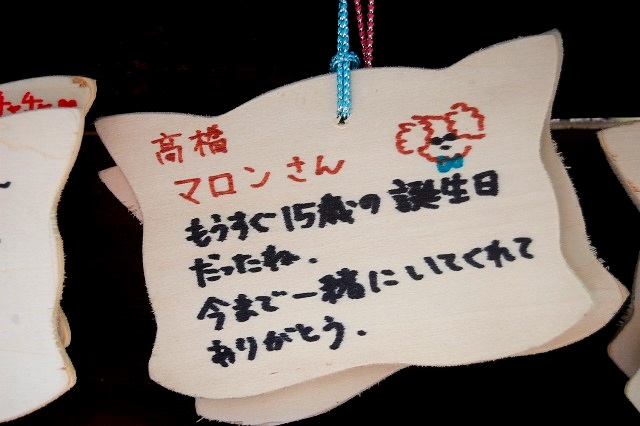 高橋
マロンさん
もうすぐ15歳の誕生日
だったね.
今まで一緒にいてくれて
ありがとう.